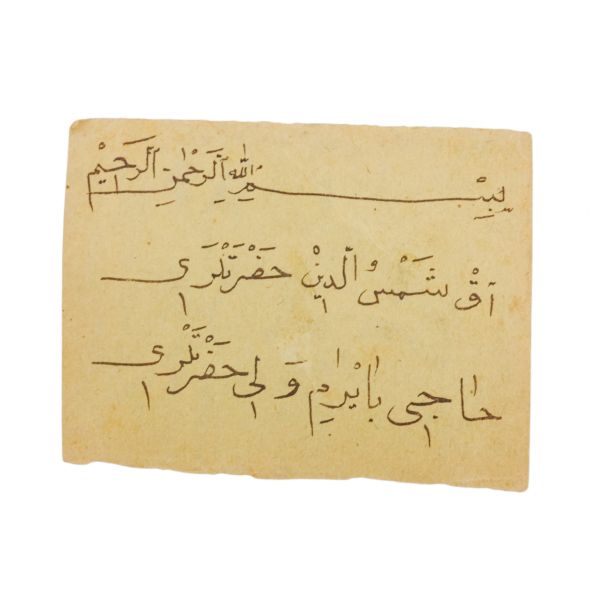 بِسْمِ اللّٰهِ الرَّحْمٰنِ الرَّحِيْمِ
آقْ شَمْسُ الدِّيْنْ حَضْرَتْلَرِى
حاجِى بَايْرَامِ وَلِى حَضْرَتْلَرِى